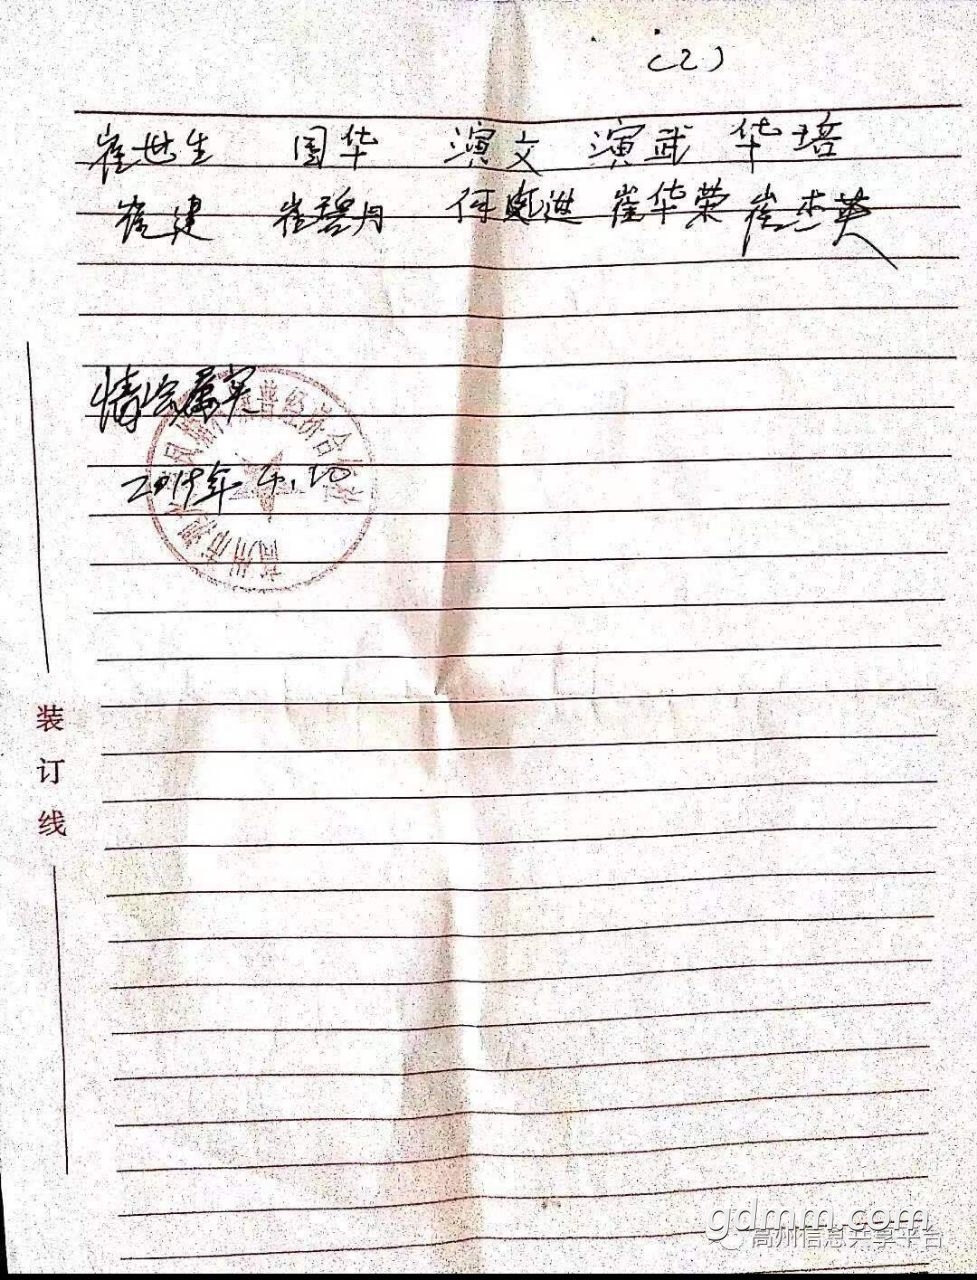 (2)
崔世生 国华 演文 演武 华培
崔建 崔碧月 何 进 崔华荣 崔杰英
情况属实
2019年4.20
高州市 经济合作社
装订线
gdmm.com
高州信息共享平台